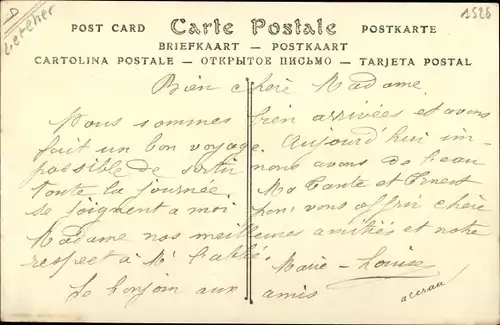 D
Letcher
1526
POST CARD Carte Postale POSTKARTE
BRIEFKAART — POSTKAART
CARTOLINA POSTALE — ОТКРЫТОЕ ПИСЬМО — TARJETA POSTAL
Bien chère Madame
Nous sommes bien arrivées et avons
fait un bon voyage. Aujourd'hui im-
possible de sortir nous avons de l'eau
toute la journée. Ma Tante et Ernest
se joignent a moi pour vous offrir chère
Madame nos meilleures amitiés et notre
respect à Mr l'abbé.
Marie-Louise
Le bonjour aux amis